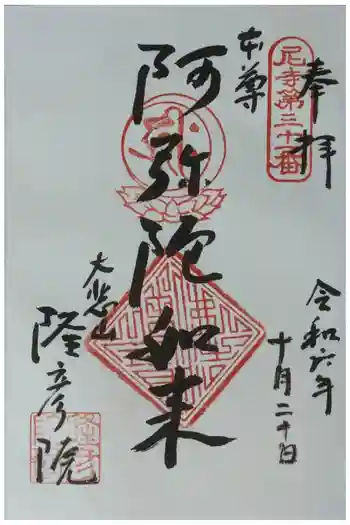 奉拝
尼寺第三十一番
令和六年
十月二十日
本尊
阿弥陀如来
大悲山
隆彦院